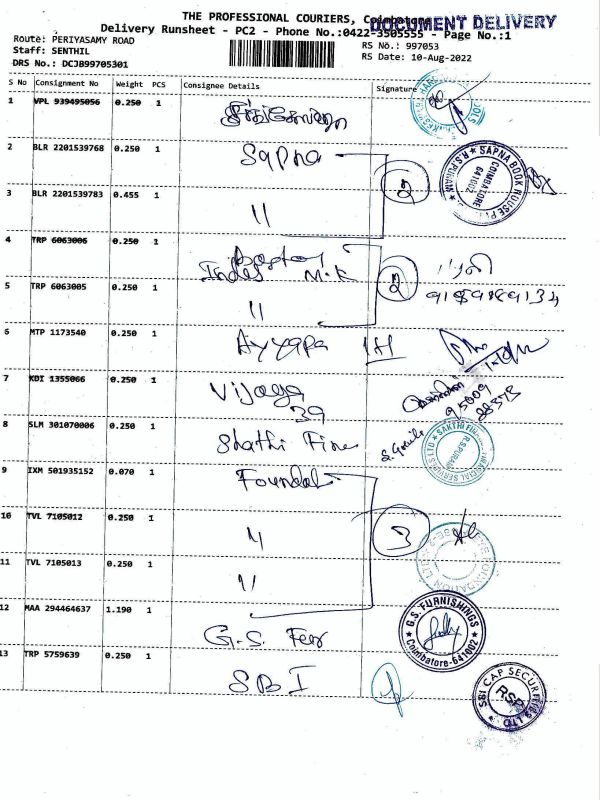 THE PROFESSIONAL COURIERS, Coimbatore
DOCUMENT DELIVERY
Delivery Runsheet - PC2 - Phone No.:0422-3505555 - Page No.:1
Route: PERIYASAMY ROAD
RS No.: 997053
Staff: SENTHIL
RS Date: 10-Aug-2022
DRS No.: DCJB99705301
S No Consignment No Weight PCS Consignee Details Signature
1 VPL 939495056 0.250 1
2 BLR 2201539768 0.250 1 Sapna
2
SAPNA BOOK HOUSE
R.S.PURAM
COIMBATORE
641002
3 BLR 2201539783 0.455 1 "
4 TRP 6063006 0.250 1
2
5 TRP 6063005 0.250 1 "
6 MTP 1173540 0.250 1 Ayyapa
7 KDI 1355066 0.250 1 Vijaya
39
95009
28373
8 SLM 301070006 0.250 1 Shathi Fine
R.S.PURAM
9 IXM 501935152 0.070 1
3
10 TVL 7105012 0.250 1 "
11 TVL 7105013 0.250 1 "
12 MAA 294464637 1.190 1 G.S. Fer
G.S. FURNISHINGS
Coimbatore-641002
13 TRP 5759639 0.250 1 SBI
SBI CAP SECURITIES LTD
RSP